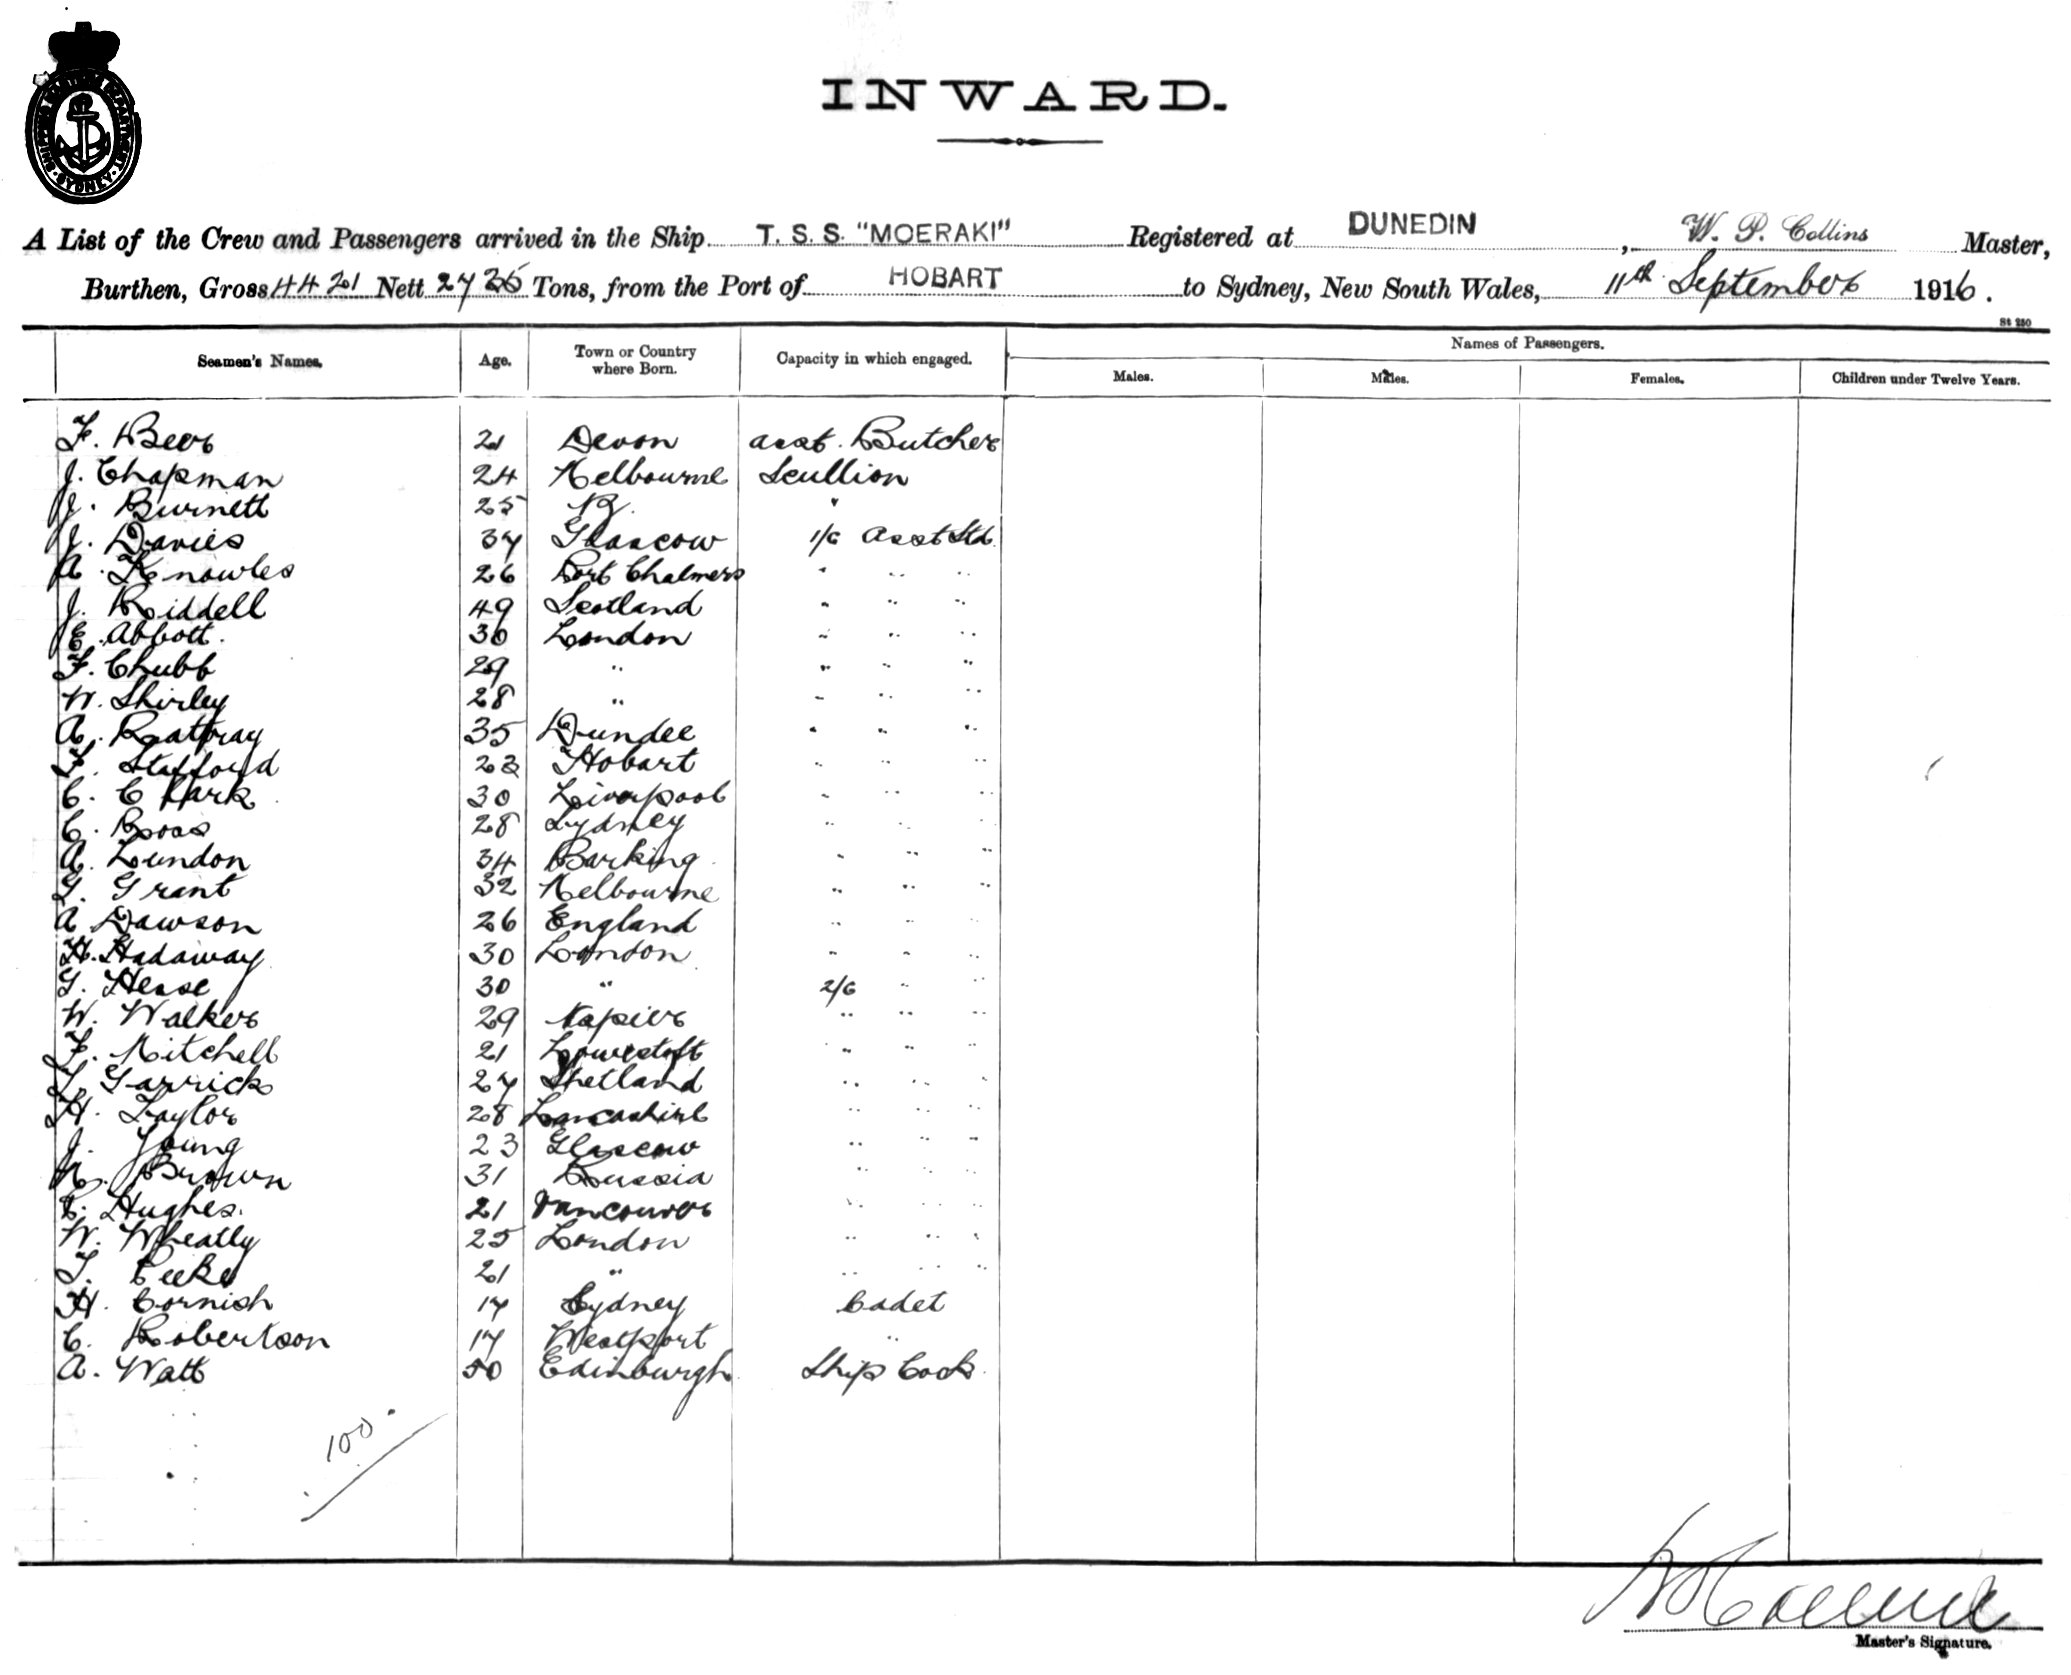 SHIPPING MASTERS DEPARTMENT SYDNEY
INWARD.
A List of the Crew and Passengers arrived in the Ship T. S. S. "MOERAKI" Registered at DUNEDIN, W. P. Collins Master,
Burthen, Gross 4421 Nett 2725 Tons, from the Port of HOBART to Sydney, New South Wales, 11th September 1916.
St 250
Seamen's Names. Age. Town or Country where Born. Capacity in which engaged. Names of Passengers.
Males. Males. Females. Children under Twelve Years.
F. Beer 21 Devon asst. Butcher
J. Chapman 24 Melbourne Scullion
J. Burnett 25 "
J. Davies 37 Glascow 1/C Asst Std.
A. Knowles 26 Port Chalmers " " "
J. Riddell 49 Scotland " " "
E. Abbott. 30 London " " "
F. Chubb 29 " " " "
W. Shirley 28 " " " "
A. Rattray 35 Dundee " " "
F. Stafford 23 Hobart " " "
C. Clark 30 Liverpool " " "
C. Ross 28 Sydney " " "
A. Lundon 34 Barking " " "
G. Grant 32 Melbourne " " "
A Dawson 26 England " " "
H. Hadaway 30 London " " "
G. Hease 30 " 2/C " "
W. Walker 29 Napier " " "
F. Mitchell 21 Lowestoft " " "
L. Garrick 27 Shetland " " "
H. Taylor 28 Lancashire " " "
J. Young 23 Glascow " " "
Brown 31 Russia " " "
C. Hughes. 21 Vancouver " " "
W. Wheatly 25 London " " "
T. 21 " " " "
H. Cornish 17 Sydney Cadet
C. Robertson 17 Westport "
A. Watt 50 Edinburgh Ship Cook
100
W P Collins
Master's Signature.